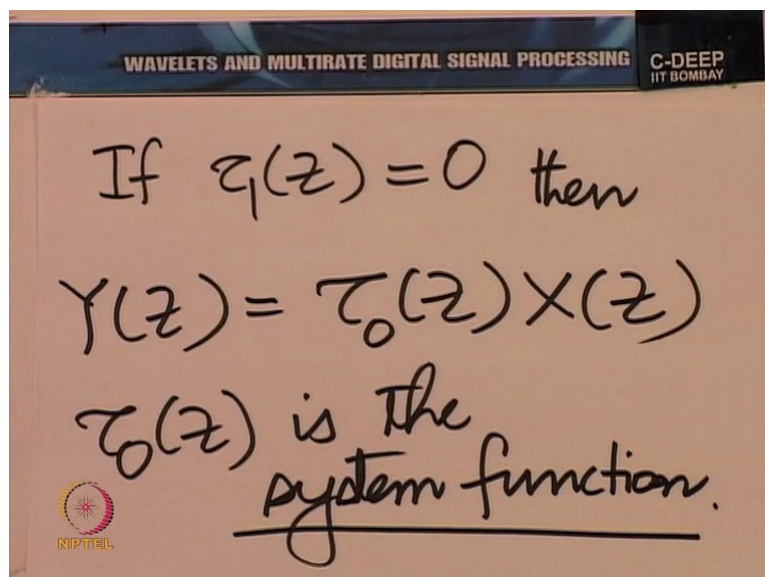 WAVELETS AND MULTIRATE DIGITAL SIGNAL PROCESSING
C-DEEP
IIT BOMBAY
If τ₁(z) = 0 then
Y(z) = τ₀(z) X(z)
τ₀(z) is the
system function.
NPTEL